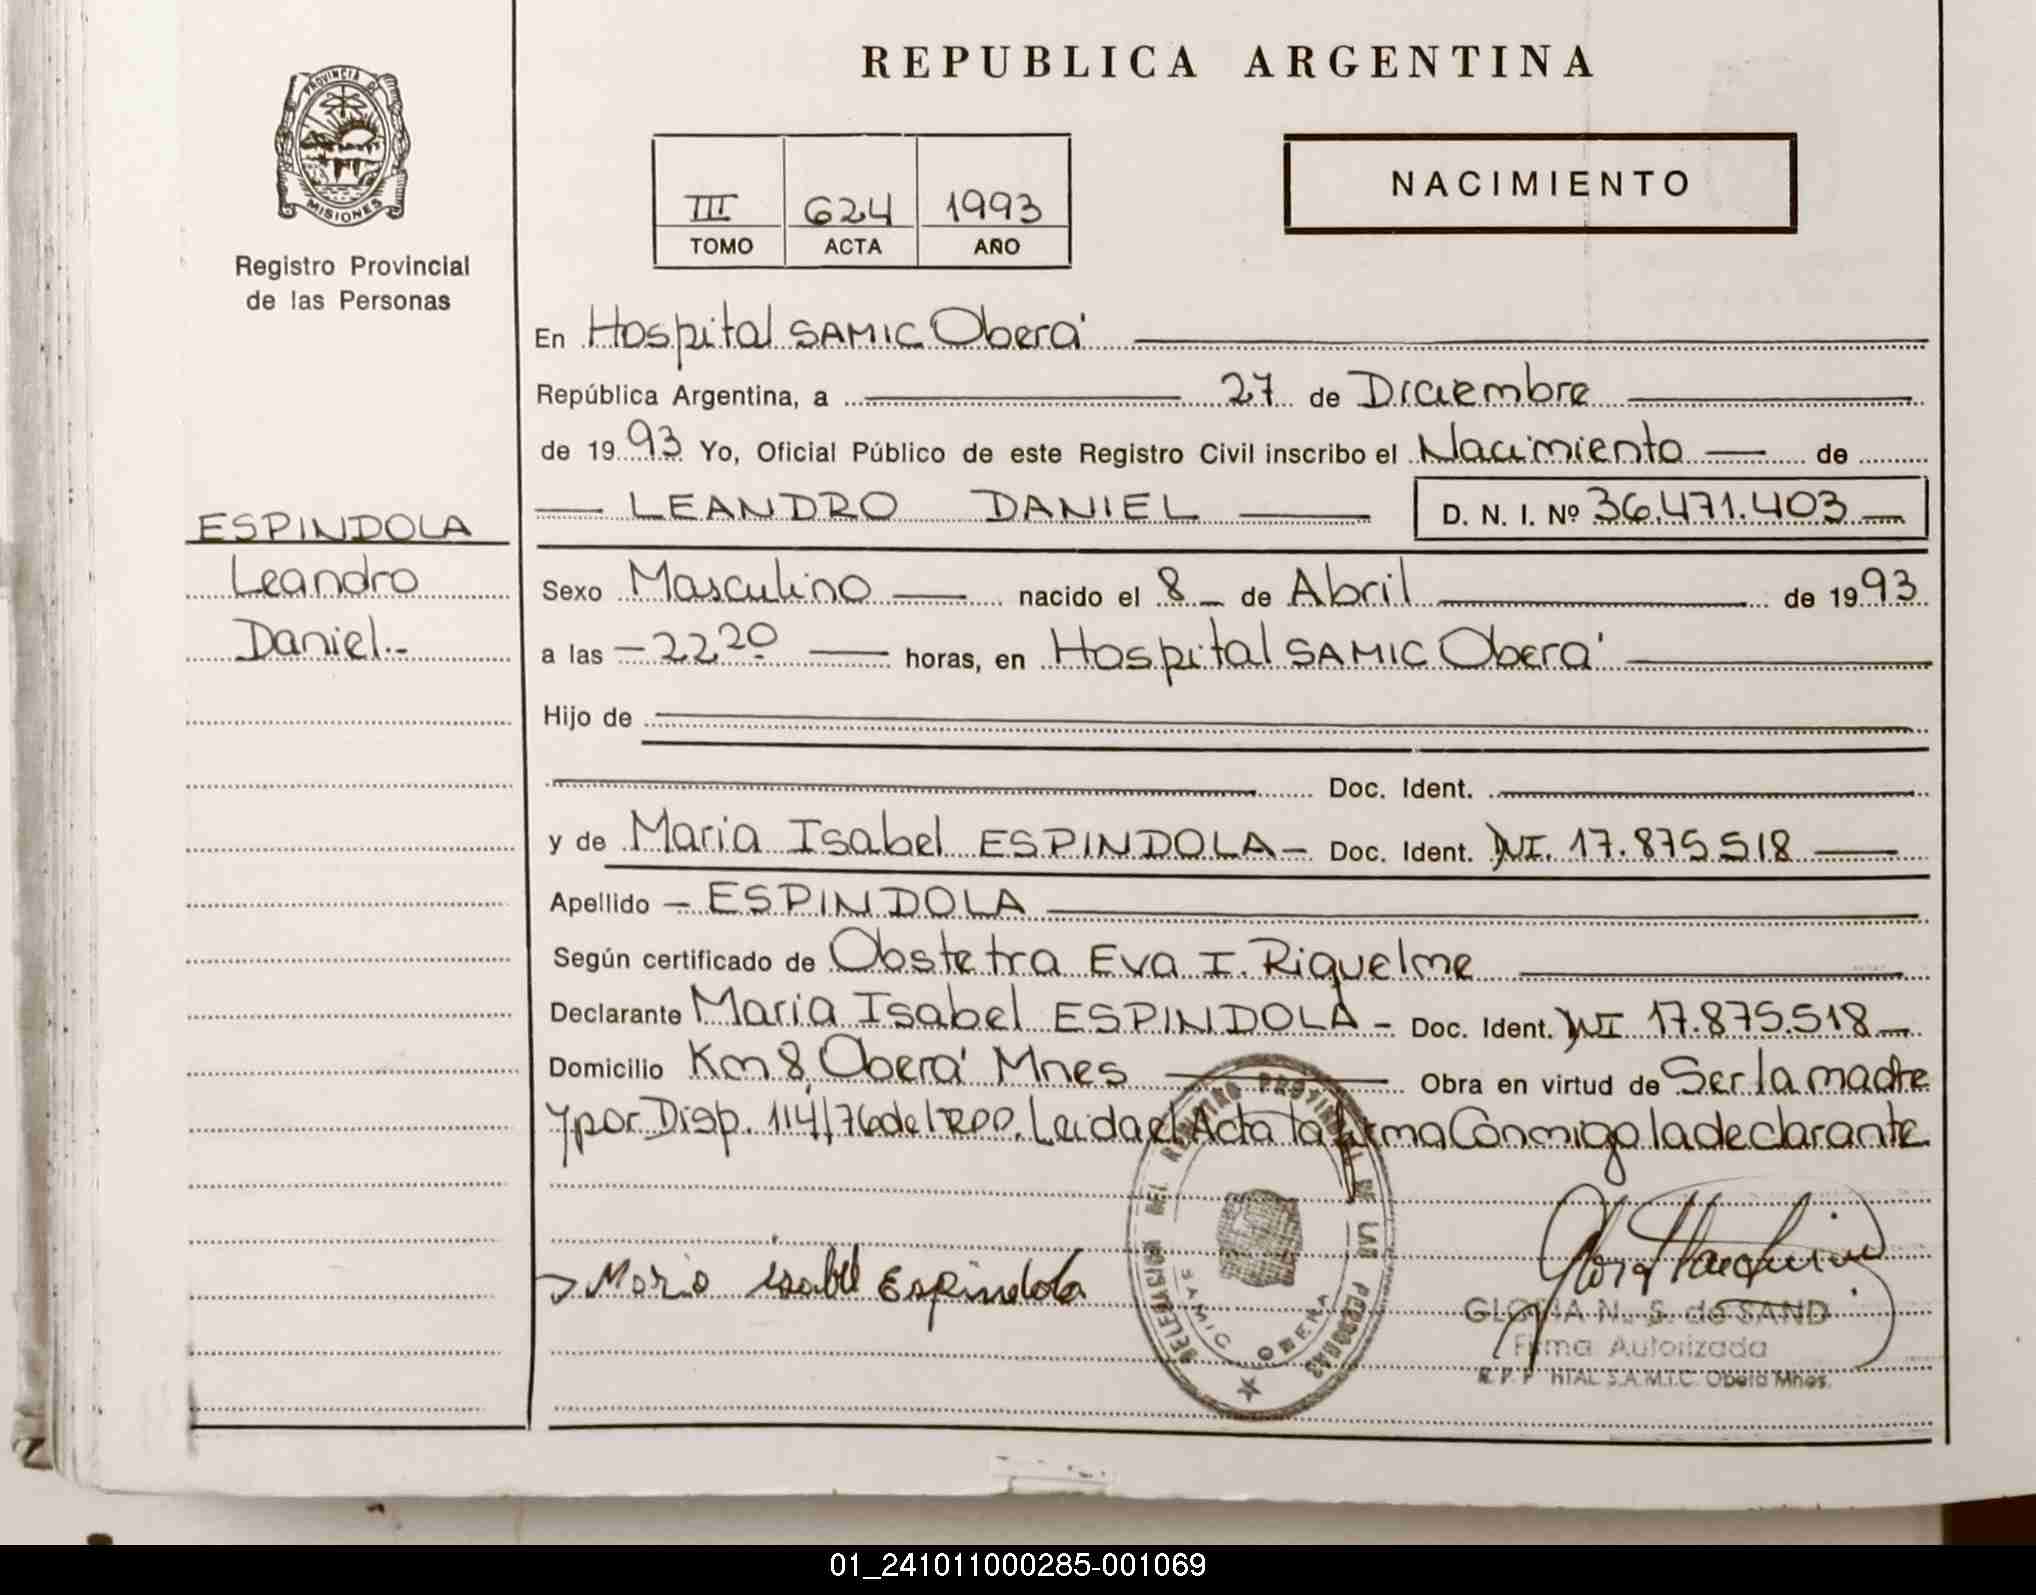 REPUBLICA ARGENTINA
PROVINCIA DE
MISIONES
Registro Provincial
de las Personas
III 624 1993
TOMO ACTA AÑO
NACIMIENTO
En Hospital SAMIC Oberá
República Argentina, a 27 de Diciembre
de 1993 Yo, Oficial Público de este Registro Civil inscribo el Nacimiento de
LEANDRO DANIEL D. N. I. Nº 36.471.403
ESPINDOLA
Leandro
Daniel.-
Sexo Masculino nacido el 8 de Abril de 1993
a las 22 20 horas, en Hospital SAMIC Oberá
Hijo de
Doc. Ident.
y de Maria Isabel ESPINDOLA - Doc. Ident. DNI. 17.875.518
Apellido - ESPINDOLA
Según certificado de Obstetra Eva I. Riquelme
Declarante Maria Isabel ESPINDOLA - Doc. Ident. DNI 17.875.518
Domicilio Km 8, Oberá Mnes Obra en virtud de Ser la madre
y por Disp. 114/76 del RPP. Leida el Acta la firma Conmigo la declarante
Maria isabel Espindola
DELEGACION DEL REGISTRO PROVINCIAL DE LAS PERSONAS
SAMIC OBERA
GLORIA N. S. de SAND
Firma Autorizada
R. P. P. HTAL S.A.M.I.C. Oberá Mnes.
01_241011000285-001069